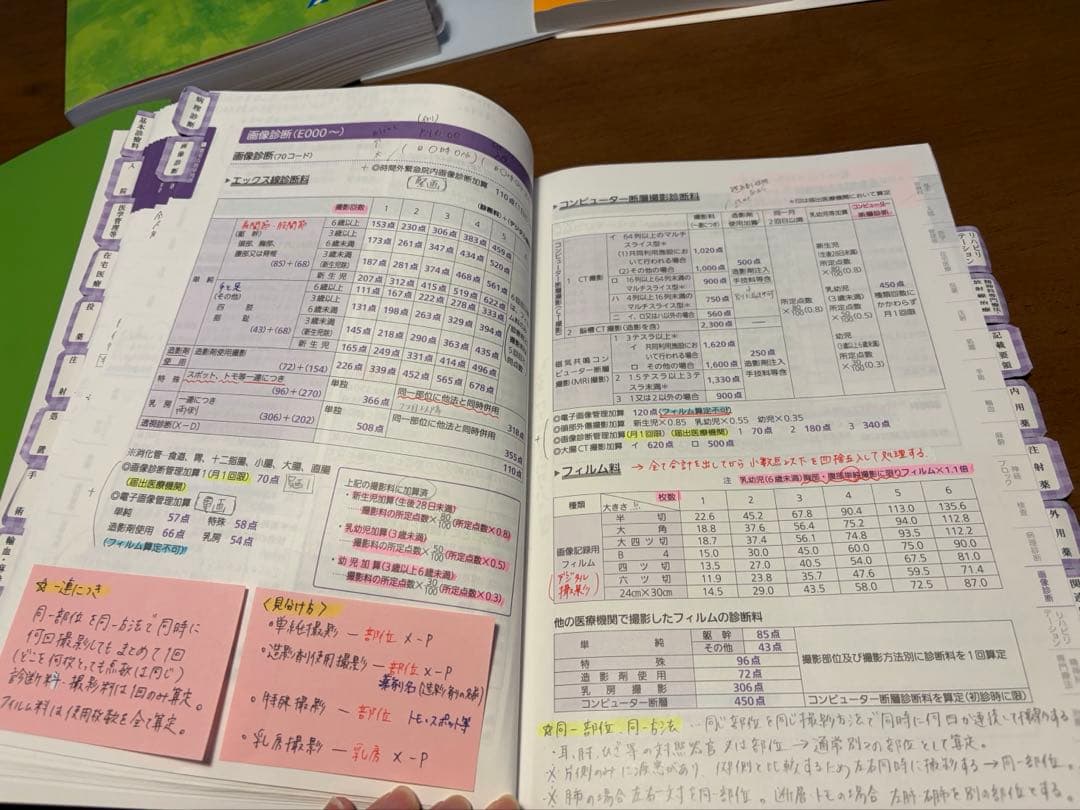 病理診断
画像診断
基本診療料
入院
医学管理等
在宅医療
投薬
注射
処置
手術
画像診断(E000～)
画像診断(70コード)
◎時間外緊急院内画像診断加算 110点
▶エックス線診断料
撮影回数 1 2 3 4 5
6歳以上 153点 230点 306点 383点 459点
(躯幹)
頭部、胸部、
腹部又は脊椎
(85)+(68)
3歳以上
6歳未満 173点 261点 347点 434点 520点
3歳未満
(新生児除) 187点 281点 374点 468点 561点
新生児 207点 312点 415点 519点 622点
単純
(その他)
四肢
(43)+(68)
6歳以上 111点 167点 222点 278点 333点
3歳以上
6歳未満 131点 198点 263点 329点 394点
3歳未満
(新生児除) 145点 218点 290点 363点 435点
新生児 165点 249点 331点 414点 496点
造影剤使用 造影剤使用撮影 (72)+(154) 226点 339点 452点 565点 678点
特殊 スポット、トモ等一連につき (96)+(270) 単独 366点 同一部位に他法と同時併用 318点
乳房 一連につき
両側
(306)+(202) 単独 508点 同一部位に他法と同時併用 355点
透視診断(X-D) 110点
※消化管…食道、胃、十二指腸、小腸、大腸、直腸
◎画像診断管理加算1(月1回限) 70点
(届出医療機関)
◎電子画像管理加算
単純 57点 特殊 58点
造影剤使用 66点 乳房 54点
(フィルム算定不可)
上記の撮影料に加算済
・新生児加算(生後28日未満)
撮影料の所定点数×80/100(所定点数×0.8)
・乳幼児加算(3歳未満)
撮影料の所定点数×50/100(所定点数×0.5)
・幼児加算(3歳以上6歳未満)
撮影料の所定点数×30/100(所定点数×0.3)
☆一連につき
同一部位を同一方法で同時に
何回撮影してもまとめて1回
(どこを何枚とっても点数は同じ)
診断料・撮影料は1回のみ算定。
フィルム料は使用枚数を全て算定。
〈見分け方〉
・単純撮影 — 部位 X-P
・造影剤使用撮影 — 部位 X-P
薬剤名(造影剤の名前)
・特殊撮影 — 部位 トモ・スポット等
・乳房撮影 — 乳房 X-P
▶コンピューター断層撮影診断料
*印は届出医療機関において算定
撮影料
(一連につき) 造影剤
使用加算 同一月
2回目以降 乳幼児等加算 コンピューター
断層診断
コンピューター断層撮影(CT撮影)
1 CT撮影
イ 64列以上のマルチ
スライス型*
(1)共同利用施設において行われる場合 1,020点
(2)その他の場合 1,000点
ロ 16列以上64列未満の
マルチスライス型* 900点
ハ 4列以上16列未満の
マルチスライス型* 750点
ニ イ、ロ又はハ以外の場合 560点
500点
造影剤注入
手技料等含
2 脳槽CT撮影(造影を含) 2,300点
磁気共鳴コンピューター断層
撮影(MRI撮影)
1 3テスラ以上*
イ 共同利用施設において行われる場合 1,620点
ロ その他の場合 1,600点
2 1.5テスラ以上3テスラ未満* 1,330点
3 1又は2以外の場合 900点
250点
造影剤注入
手技料等含
所定点数
×80/100(0.8)
新生児
(生後28日未満)
所定点数
×80/100(0.8)
乳幼児
(3歳未満)
所定点数
×50/100(0.5)
幼児
(3歳以上6歳未満)
所定点数
×30/100(0.3)
450点
種類回数に
かかわらず
月1回限
◎電子画像管理加算 120点(フィルム算定不可)
◎頭部外傷撮影加算 新生児×0.85 乳幼児×0.55 幼児×0.35
◎画像診断管理加算(月1回限)(届出医療機関) 1 70点 2 180点 3 340点
◎大腸CT撮影加算 イ 620点 ロ 500点
▶フィルム料 → 全て合計を出してから小数点以下を四捨五入して処理する。
注 乳幼児(6歳未満)胸部・腹部単純撮影に限りフィルム×1.1倍
種類 大きさ 枚数 1 2 3 4 5 6
画像記録用
フィルム
(デジタル撮影)
半切 22.6 45.2 67.8 90.4 113.0 135.6
大角 18.8 37.6 56.4 75.2 94.0 112.8
大四ツ切 18.7 37.4 56.1 74.8 93.5 112.2
B4 15.0 30.0 45.0 60.0 75.0 90.0
四ツ切 13.5 27.0 40.5 54.0 67.5 81.0
六ツ切 11.9 23.8 35.7 47.6 59.5 71.4
24cm×30cm 14.5 29.0 43.5 58.0 72.5 87.0
他の医療機関で撮影したフィルムの診断料
単純 躯幹 85点
その他 43点
特殊 96点
造影剤使用 72点
乳房撮影 306点
撮影部位及び撮影方法別に診断料を1回算定
コンピューター断層 450点 コンピューター断層診断料を算定(初診時に限)
☆同一部位、同一方法 …同じ部位を同じ撮影方法で同時に何回か連続して撮影する
・耳、肘、ひざ等の対照器官又は部位 → 通常別々の部位として算定。
※片側のみに疾患があり、健側と比較するため左右同時に撮影する→同一部位。
※肺の場合左右一対を同一部位。断層・トモの場合 左肺・右肺を別の部位とする。
リハビリテーション
放射線治療
記載要領
内用薬
注射薬
外用薬